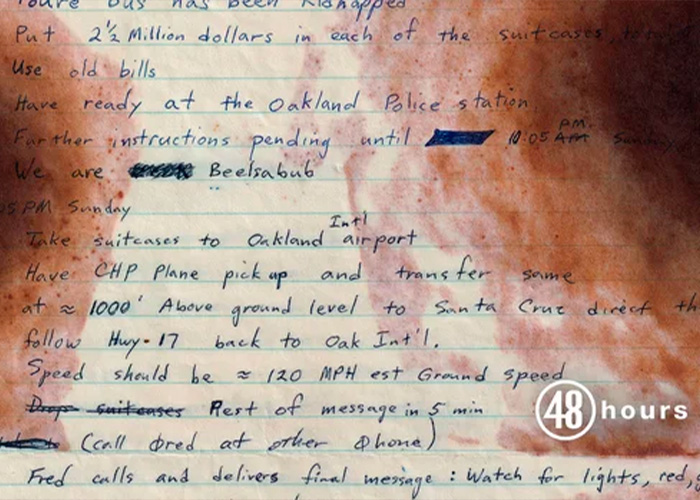 Youre bus has been Kidnapped
Put 2½ Million dollars in each of the suitcases
Use old bills
Have ready at the Oakland Police station
Further instructions pending until 10:05 PM. AM Sunday
We are Beelsabub
05 PM Sunday
Take suitcases to Oakland Int'l airport
Have CHP Plane pick up and transfer same
at ≈ 1000' Above ground level to Santa Cruz direct th
follow Hwy-17 back to Oak Int'l.
Speed should be ≈ 120 MPH est Ground speed
Drop suitcases Rest of message in 5 min
(call Φred at other Φhone)
Fred calls and delivers final message : Watch for lights, red,
48 hours